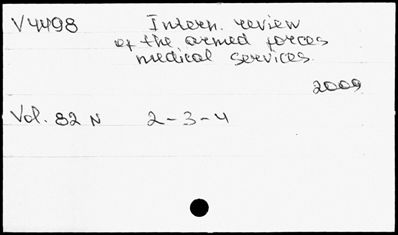 V4498 Intern. review
of the armed forces
medical services.
2009
Vol. 82 N 2-3-4